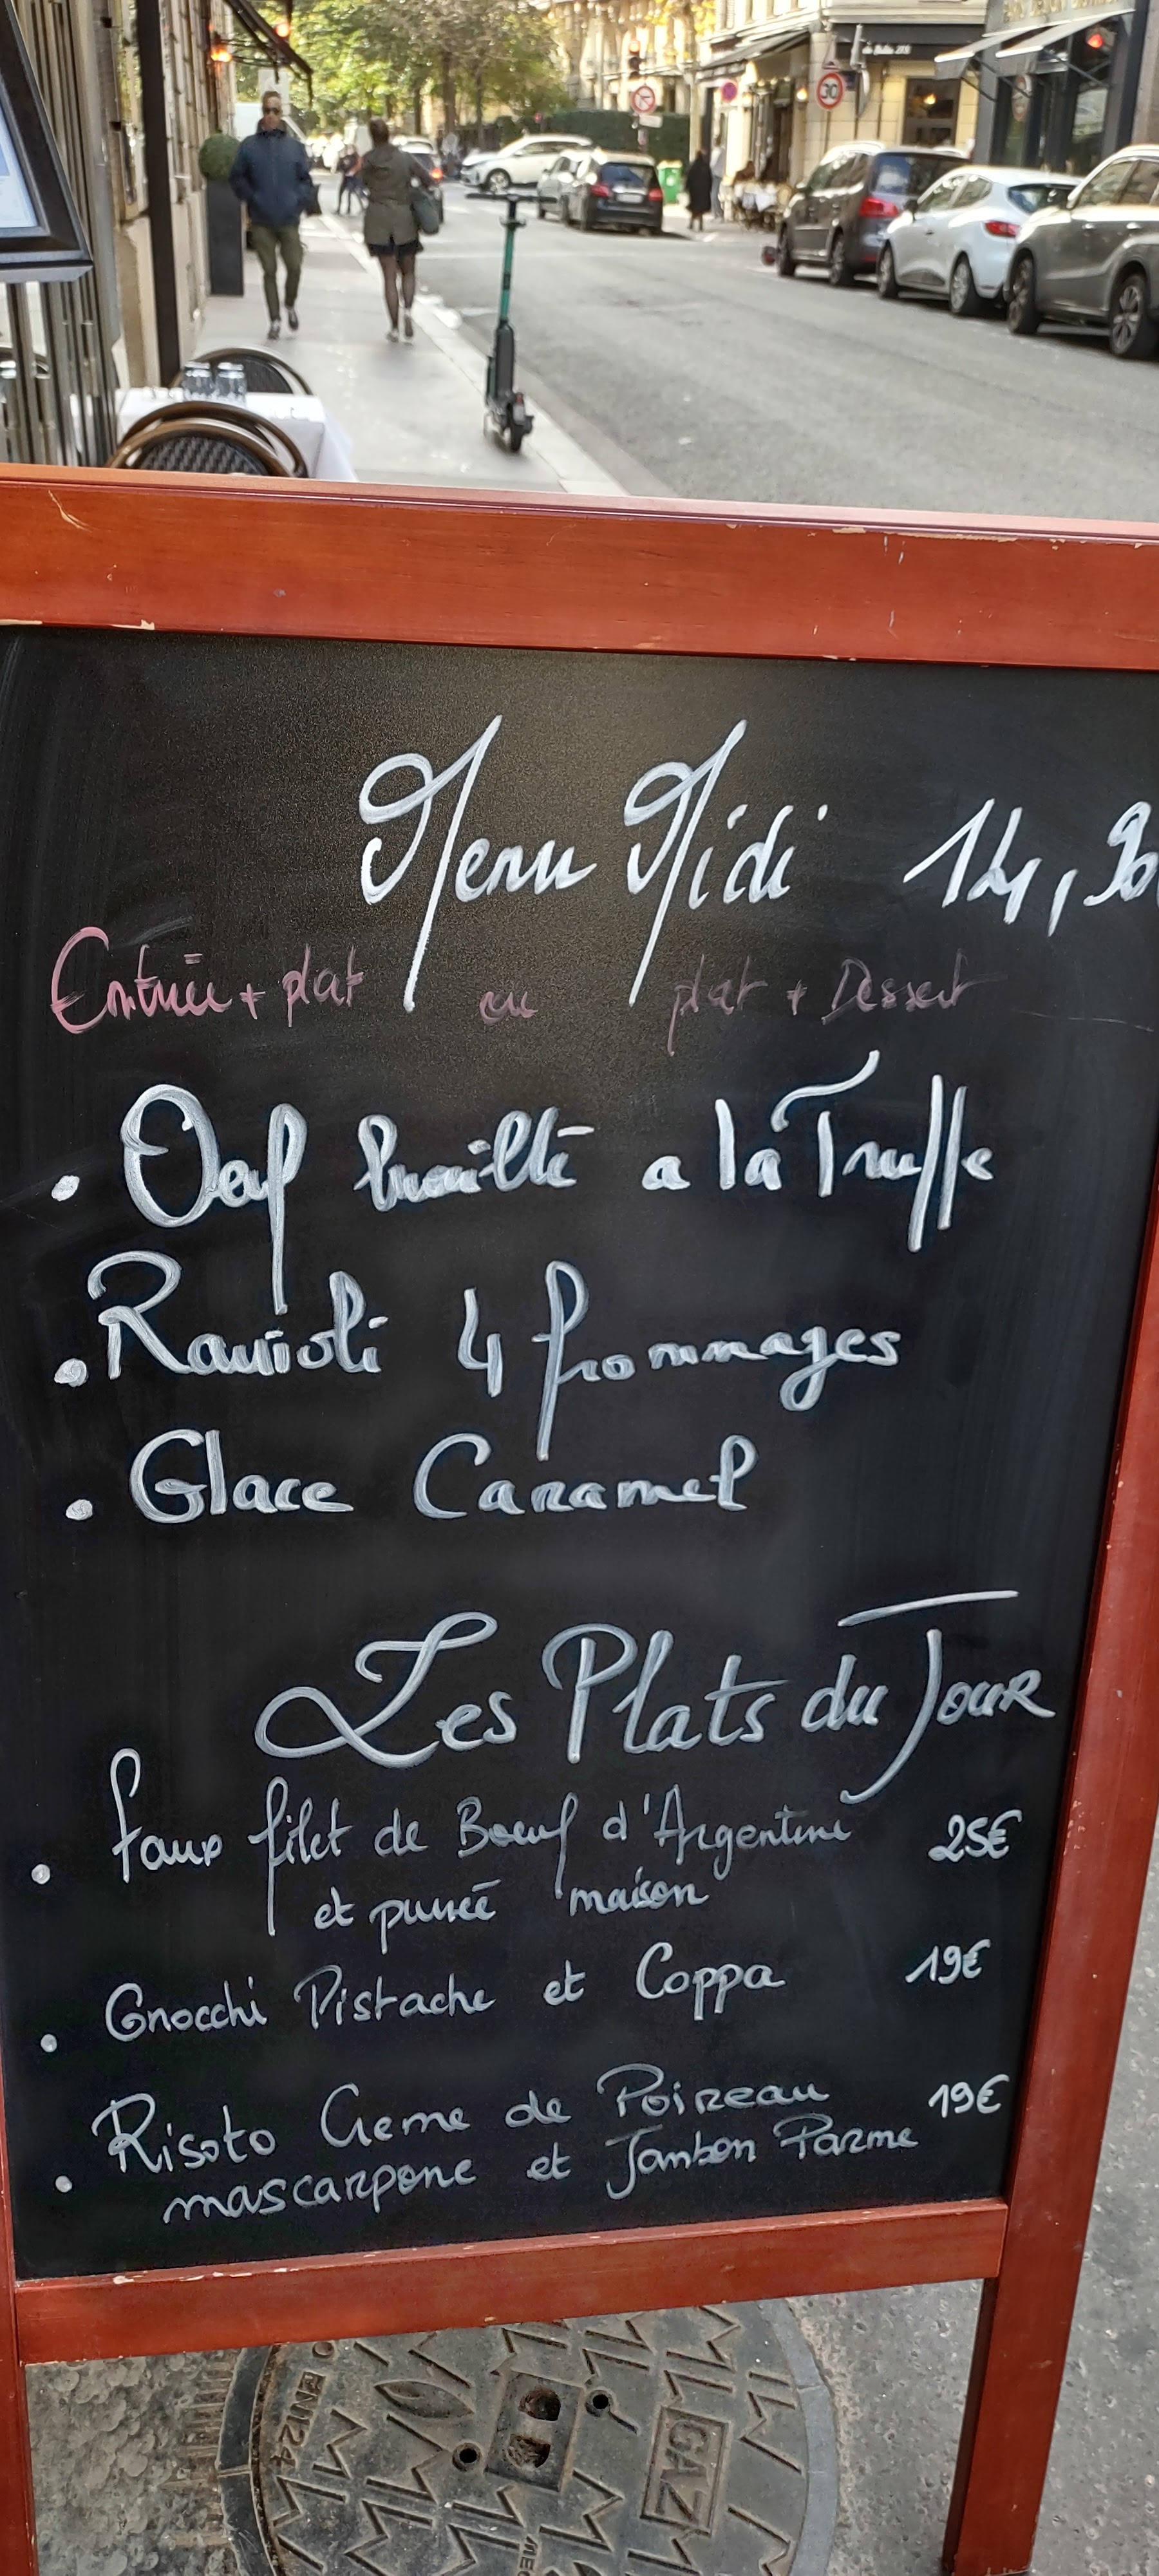 30
Menu Midi 14,90
Entrée + plat ou plat + Dessert
• Oeuf brouillé a la Truffe
• Ravioli 4 frommages
• Glace Caramel
Les Plats du Jour
• faux filet de Boeuf d'Argentine 25€
et purée maison
• Gnocchi Pistache et Coppa 19€
• Risoto Creme de Poireau 19€
mascarpone et Jambon Parme
EN124
GAZ